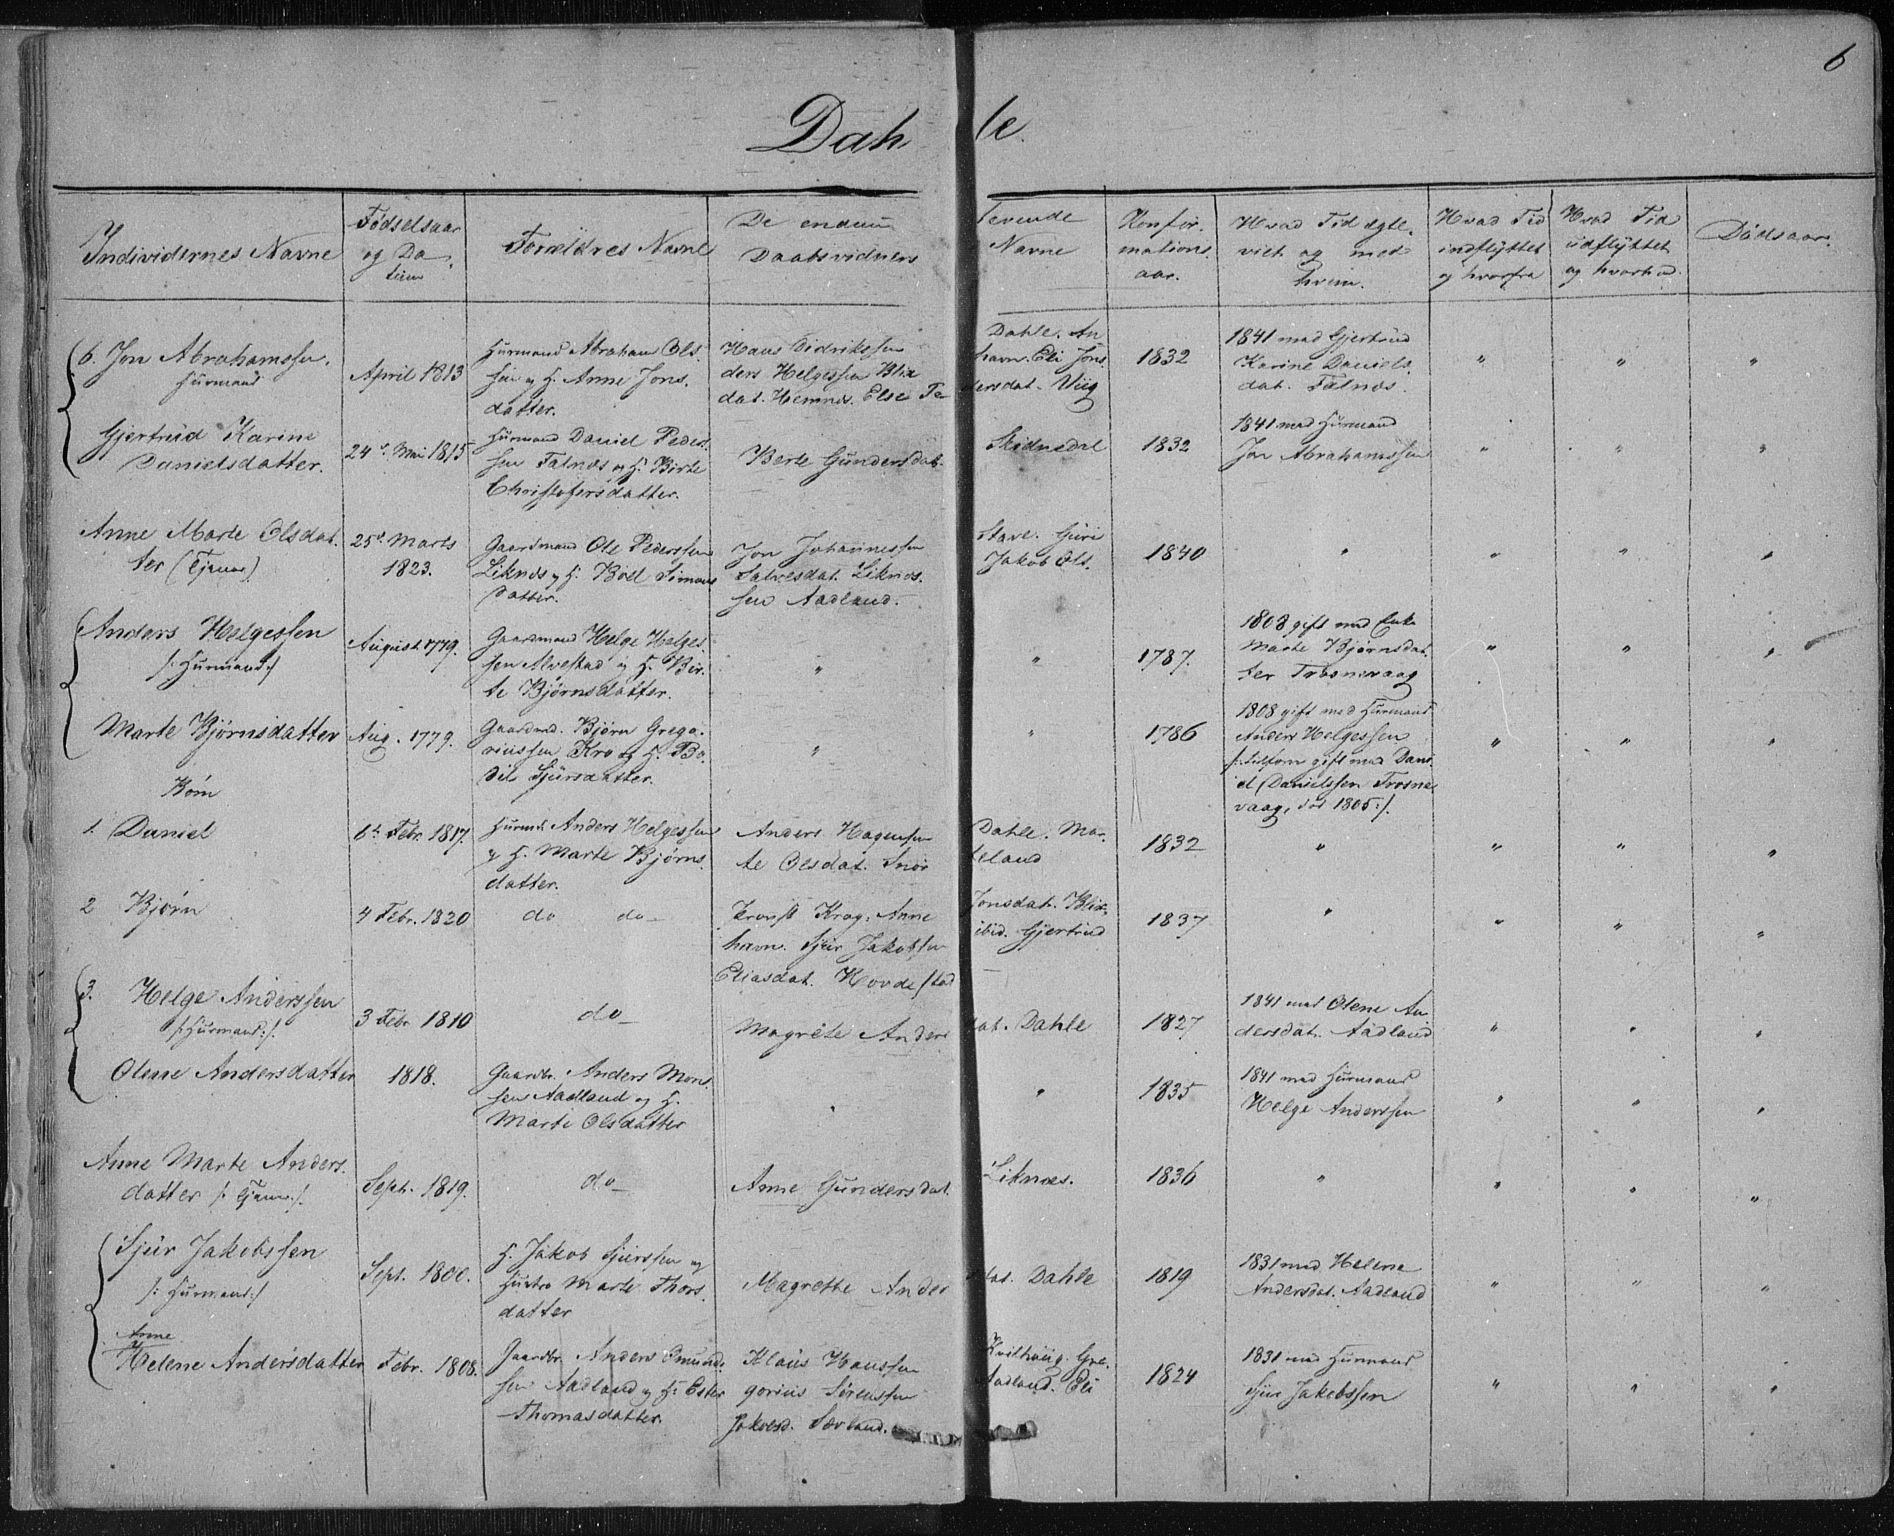 6
Dahle.
Individernes Navne | Fødselsaar og Datum | Forældres Navne | De endnu levende Daabsvidners Navne | Konfirmationsaar. | Hvad Tid ægteviet og med hvem. | Hvad Tid indflyttet og hvorfra | Hvad Tid udflyttet og hvorhen | Dødsaar.
6. Jon Abrahamssen, Huusmand | April 1813 | Huusmand Abraham Olssen og H. Anne Jonsdatter. | Hans Didrikssen Dahle. Anders Helgessen Blixhavn. Eli Jonsdat. Hemnes. Else Pedersdat. Viig | 1832 | 1841 med Gjertrud Karine Danielsdat. Falnæs. | " | " | "
Gjertrud Karine Danielsdatter. | 24d. Mai 1815 | Huusmand Daniel Pedersen Falnæs og H. Birte Christofersdatter. | Berte Gundersdat. Skidnedal | 1832 | 1841 med Huusmand Jon Abrahamssen | " | " | "
Anne Marte Olsdatter (Tjener) | 25d. Marts 1823. | Gaardmand Ole Pederssen Liknæs og H. Boel Simonsdatter. | Jon Johannessen Stave. Guri Salvesdat. Liknes. Jakob Olssen Aadland. | 1840 | " | " | " | "
Anders Helgessen /: Huusmand :/ | August 1779. | Gaardmand Helge Helgessen Alvestad og H. Birte Bjørnsdatter. | " | 1787. | 1808 gift med Enke Marte Bjørnsdatter Trosnevaag | " | " | "
Marte Bjørnsdatter | Aug. 1779. | Gaardmd. Bjørn Gregoriussen Kro og H. Bodil Sjursdatter. | " | 1786 | 1808 gift med Huusmand Anders Helgessen /: tilforn gift med Daniel Danielssen Trosnevaag, død 1805 :/. | " | " | "
Børn
1. Daniel | 6t. Febr. 1817. | Huusmd. Anders Helgessen og H. Marte Bjørnsdatter. | Anders Hagenssen Dahle. Marte Olsdat. Snørteland | 1832 | " | " | " | "
2 Bjørn | 4 Febr. 1820 | do do | Provst Krog. Anne Jonsdat. Blixhavn. Sjur Jakobssen ibid. Gjertrud Eliasdat. Hovdestad | 1837 | " | " | " | "
3. Helge Anderssen /: Huusmand :/. | 3 Febr 1810 | do | Magrete Andersdat. Dahle | 1827 | 1841 med Olene Andersdat. Aadland | " | " | "
Olene Andersdatter | 1818. | Gaardbr. Anders Monssen Aadland og H. Marte Olsdatter | " | 1835 | 1841 med Huusmand Helge Anderssen | " | " | "
Anne Marte Andersdatter /: Tjener :/. | Sept. 1819. | do | Anne Gundersdat. Liknæs. | 1836 | " | " | " | "
Sjur Jakobssen /: Huusmand :/ | Sept. 1800. | H. Jakob Sjurssen og Hustro Marte Thorsdatter | Magrethe Andersdat. Dahle | 1819 | 1831 med Helene Andersdat. Aadland | " | " | "
Anne Helene Andersdatter | Febr. 1808. | Gaardbr. Anders Omundssen Aadland og H. Ester Thomasdatter. | Klaus Hanssen Kvilhaug. Gregorius Sørenssen Aadland. Eli Jakobsd. Sævland. | 1824 | 1831 med Huusmand Sjur Jakobssen | " | " | "